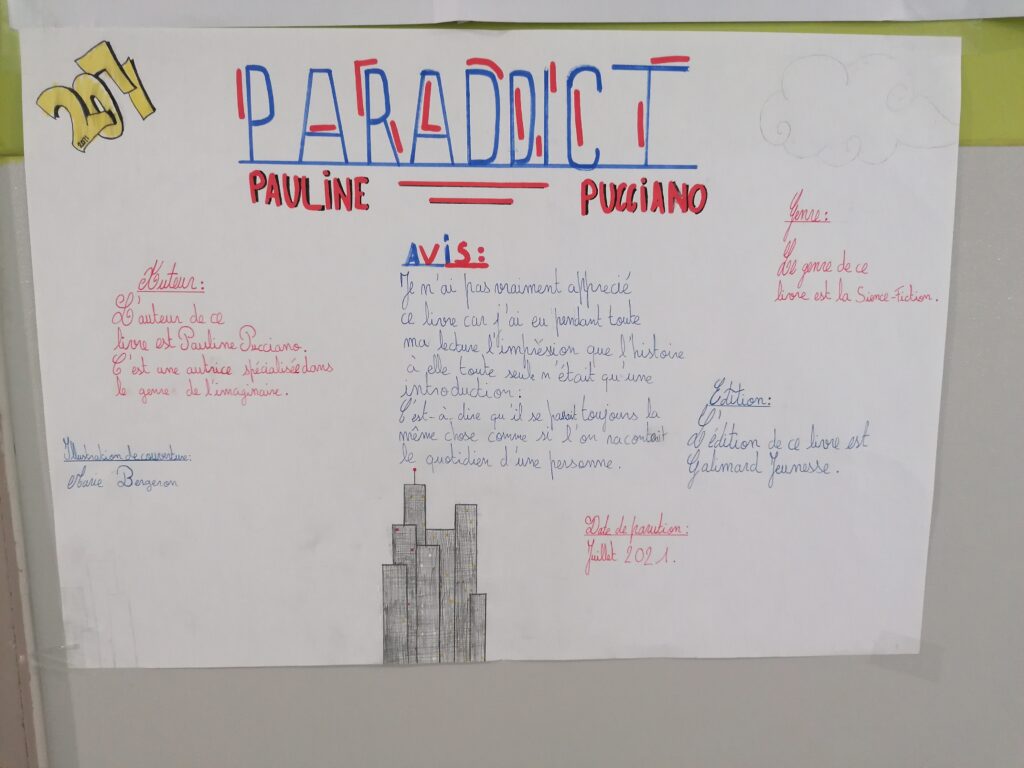 PARADDICT
PAULINE PUCCIANO
Genre:
Le genre de ce
livre est la Sience-Fiction.
Auteur:
L'auteur de ce
livre est Pauline Pucciano.
C'est une autrice spécialisée dans
le genre de l'imaginaire.
AVIS:
Je n'ai pas vraiment apprecié
ce livre car j'ai eu pendant toute
ma lecture l'impréssion que l'histoire
à elle toute seule n'était qu'une
introduction:
C'est-à-dire qu'il se parait toujours la
même chose comme si l'on racontait
le quotidien d'une personne.
Edition:
L'édition de ce livre est
Galimard Jeunesse.
Illustration de couverture:
Marie Bergeron
Date de parution:
Juillet 2021.